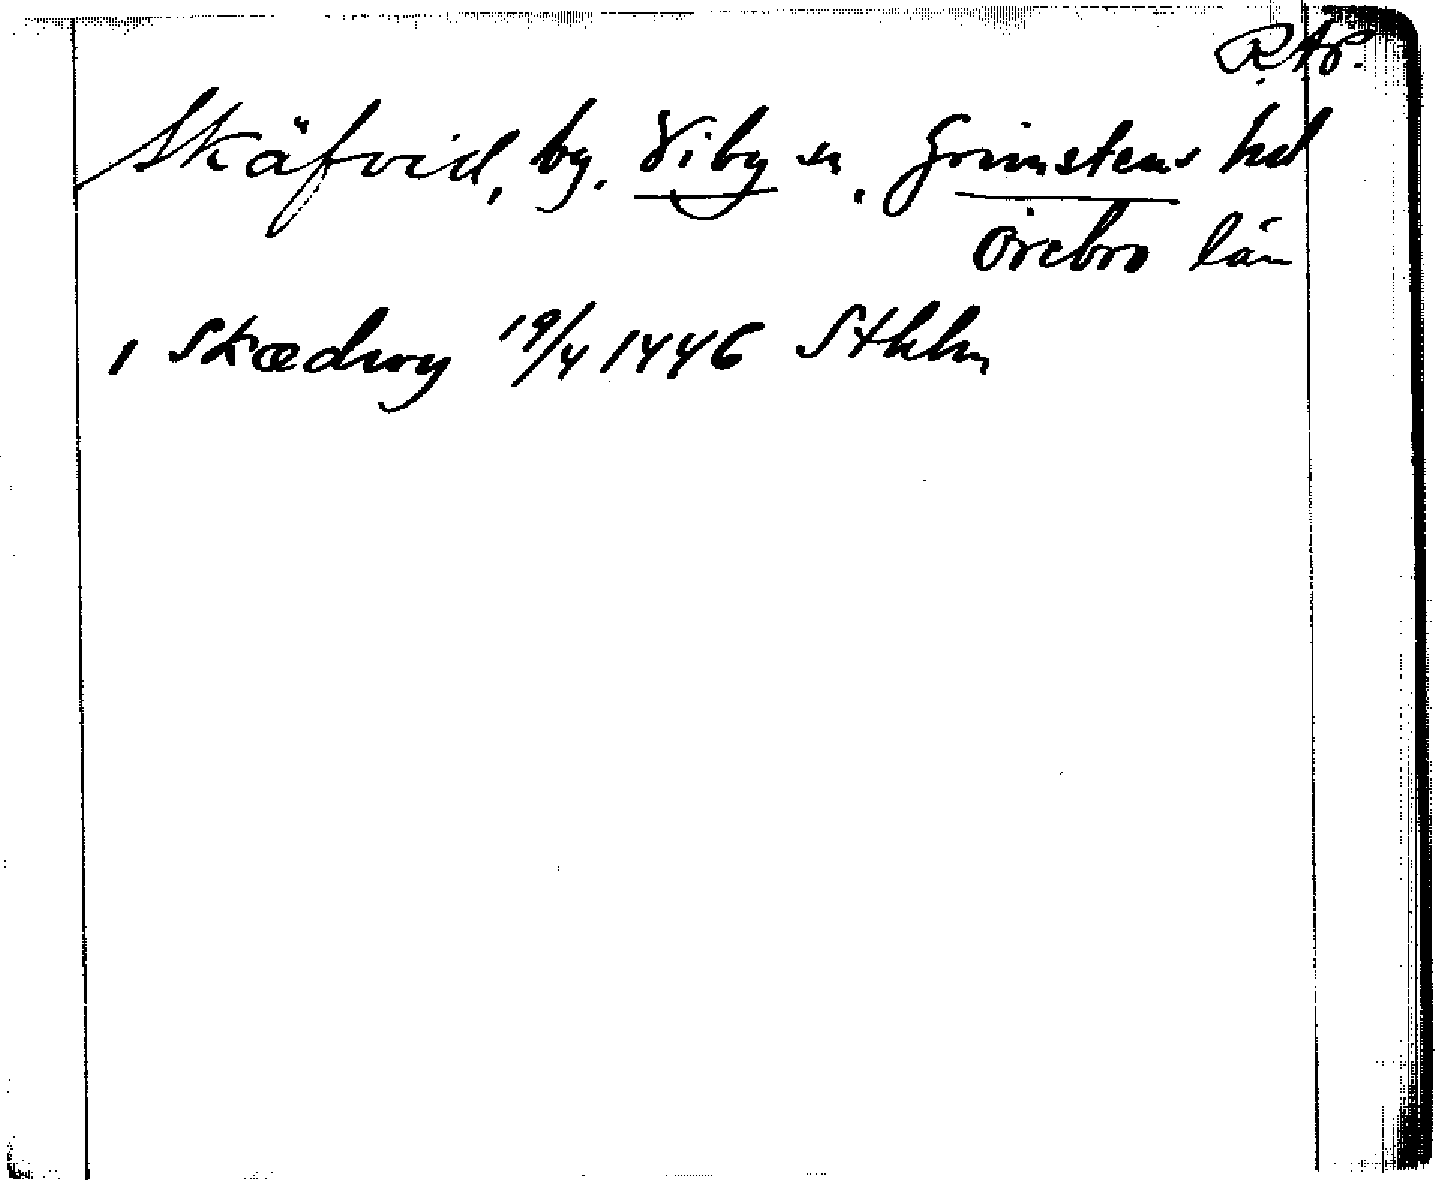 R.A.P.
Skäfvid, by. Viby sn. Grimstens hd
Örebro län
i Skædwy 19/4 1446 Sthlm